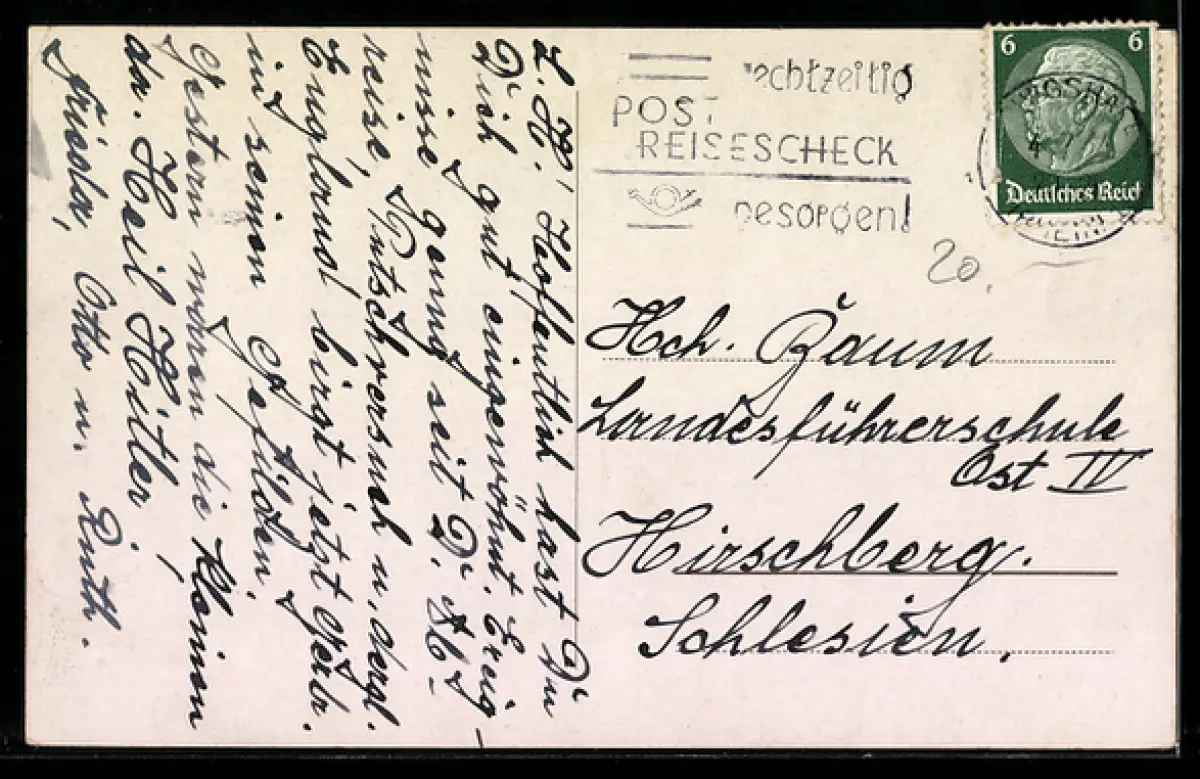 L. H.! Hoffentlich hast Du
Dich gut eingewöhnt. Ereig-
nisse genug seit D. Ab-
reise, Putschversuch u. dergl.
England birgt jetzt Gerh.
in seinen Gefilden.
Gestern waren die Kleinen
da. Heil Hitler,
Frieda, Otto u. Ruth.
rechtzeitig
POST
REISESCHECK
besorgen!
6 6
Deutsches Reich
20
Hch. Baum
Landesführerschule
Ost IV
Hirschberg.
Schlesien.